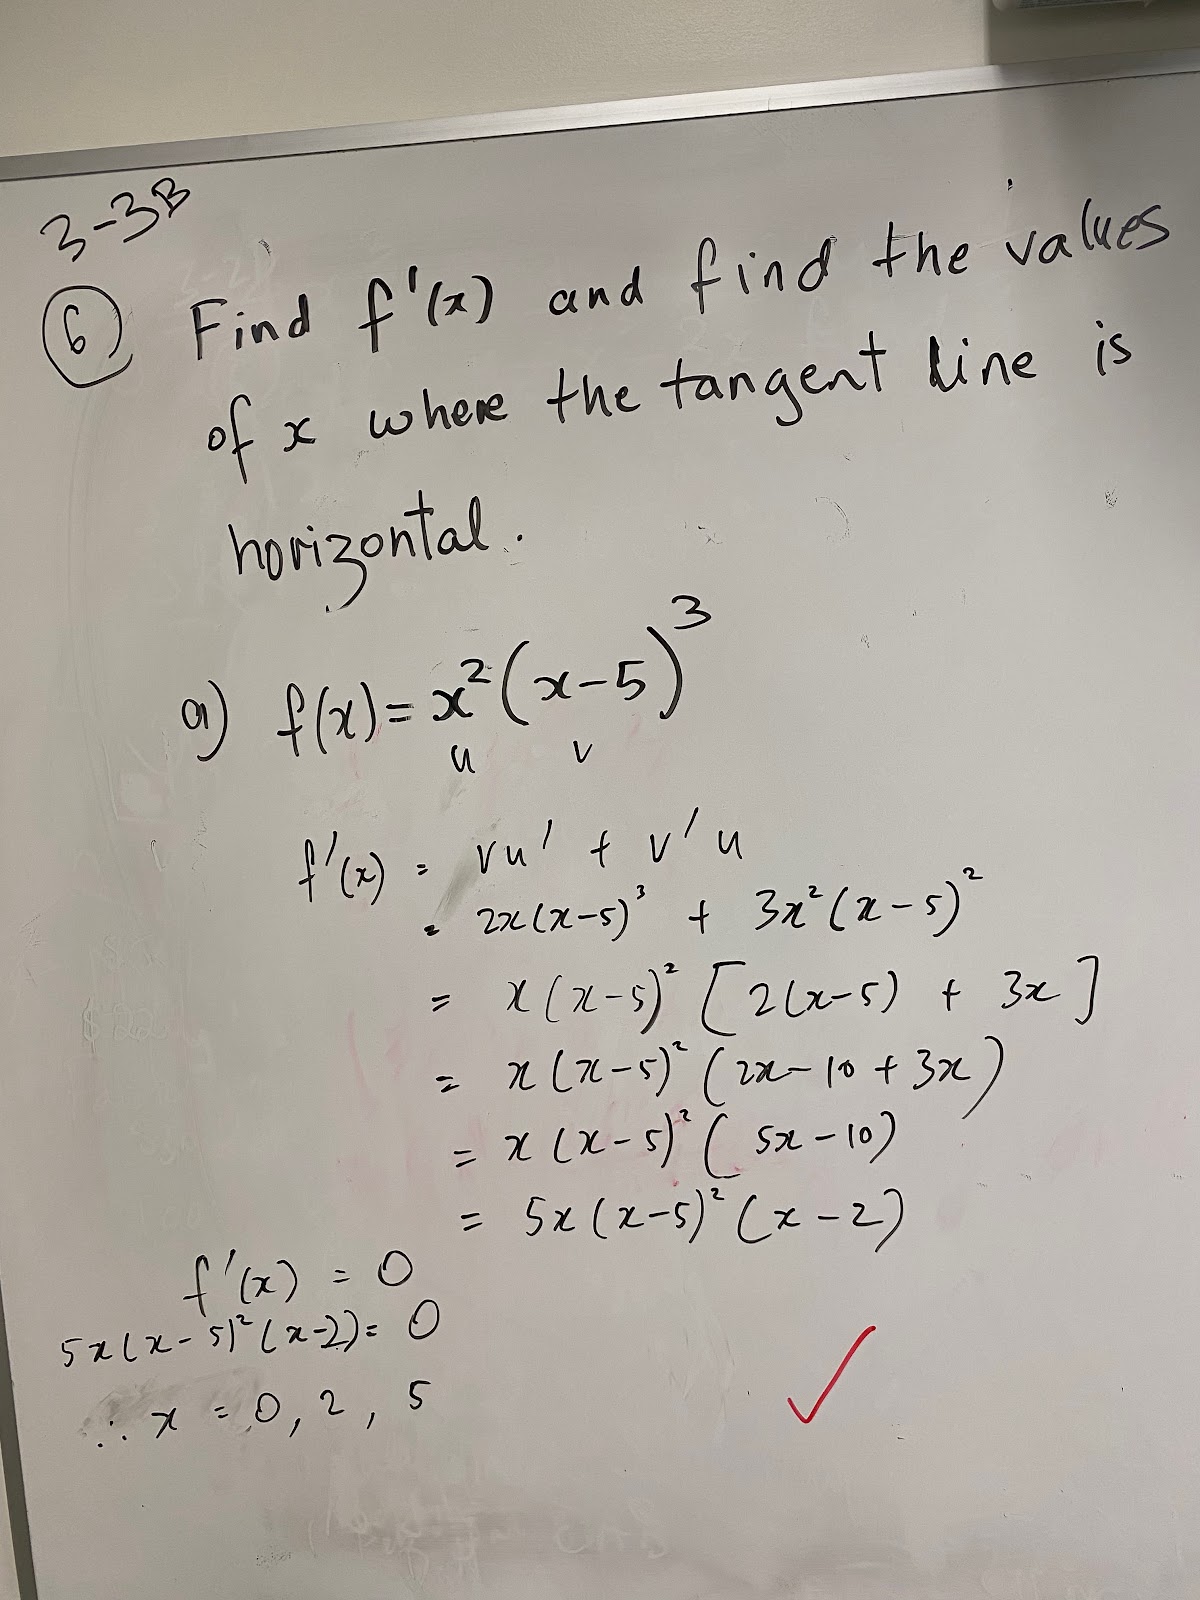 3-3B
6 Find f'(x) and find the values
of x where the tangent line is
horizontal.
a) f(x) = x²(x-5)³
u v
f'(x) = vu' + v'u
= 2x(x-5)³ + 3x²(x-5)²
= x(x-5)² [2(x-5) + 3x]
= x(x-5)² (2x-10+3x)
= x(x-5)² (5x-10)
= 5x(x-5)² (x-2)
f'(x) = 0
5x(x-5)²(x-2) = 0
∴ x = 0, 2, 5